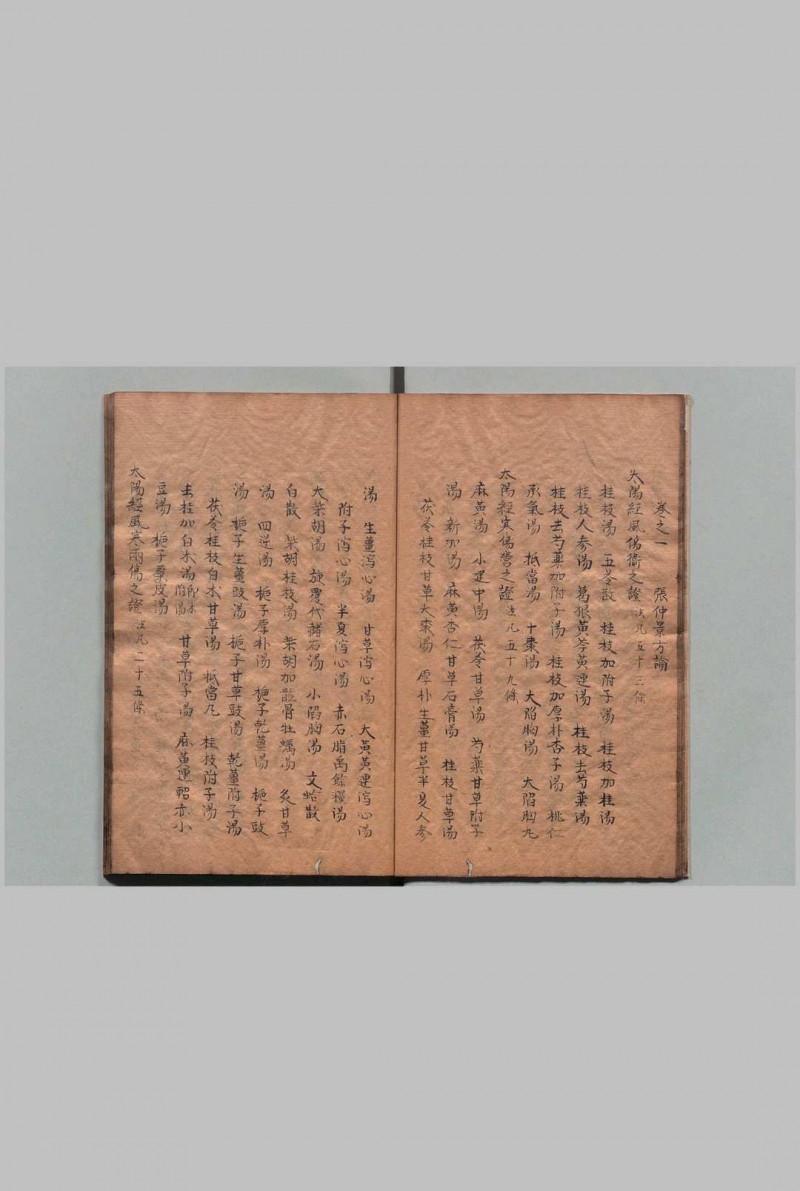 卷之一　張仲景方論
太陽經風傷衛之證 法凡五十三條
桂枝湯　五苓散　桂枝加附子湯　桂枝加桂湯
桂枝人參湯　葛根黃芩黃連湯　桂枝去芍藥湯
桂枝去芍藥加附子湯　桂枝加厚朴杏子湯　桃仁
承氣湯　抵當湯　十棗湯　大陷胸湯　大陷胸丸
太陽經寒傷營之證 法凡五十九條
麻黃湯　小建中湯　茯苓甘草湯　芍藥甘草附子
湯　新加湯　麻黃杏仁甘草石膏湯　桂枝甘草湯
茯苓桂枝甘草大棗湯　厚朴生薑甘草半夏人參
湯　生薑瀉心湯　甘草瀉心湯　大黃黃連瀉心湯
附子瀉心湯　半夏瀉心湯　赤石脂禹餘糧湯
大柴胡湯　旋覆代赭石湯　小陷胸湯　文蛤散
白散　柴胡桂枝湯　柴胡加龍骨牡蠣湯　炙甘草
湯　四逆湯　梔子厚朴湯　梔子乾薑湯　梔子豉
湯　梔子生薑豉湯　梔子甘草豉湯　乾薑附子湯
茯苓桂枝白朮甘草湯　抵當丸　桂枝附子湯
去桂加白朮湯　甘草附子湯　麻黃連軺赤小
豆湯　梔子蘗皮湯
太陽經風寒兩傷之證 法凡二十五條